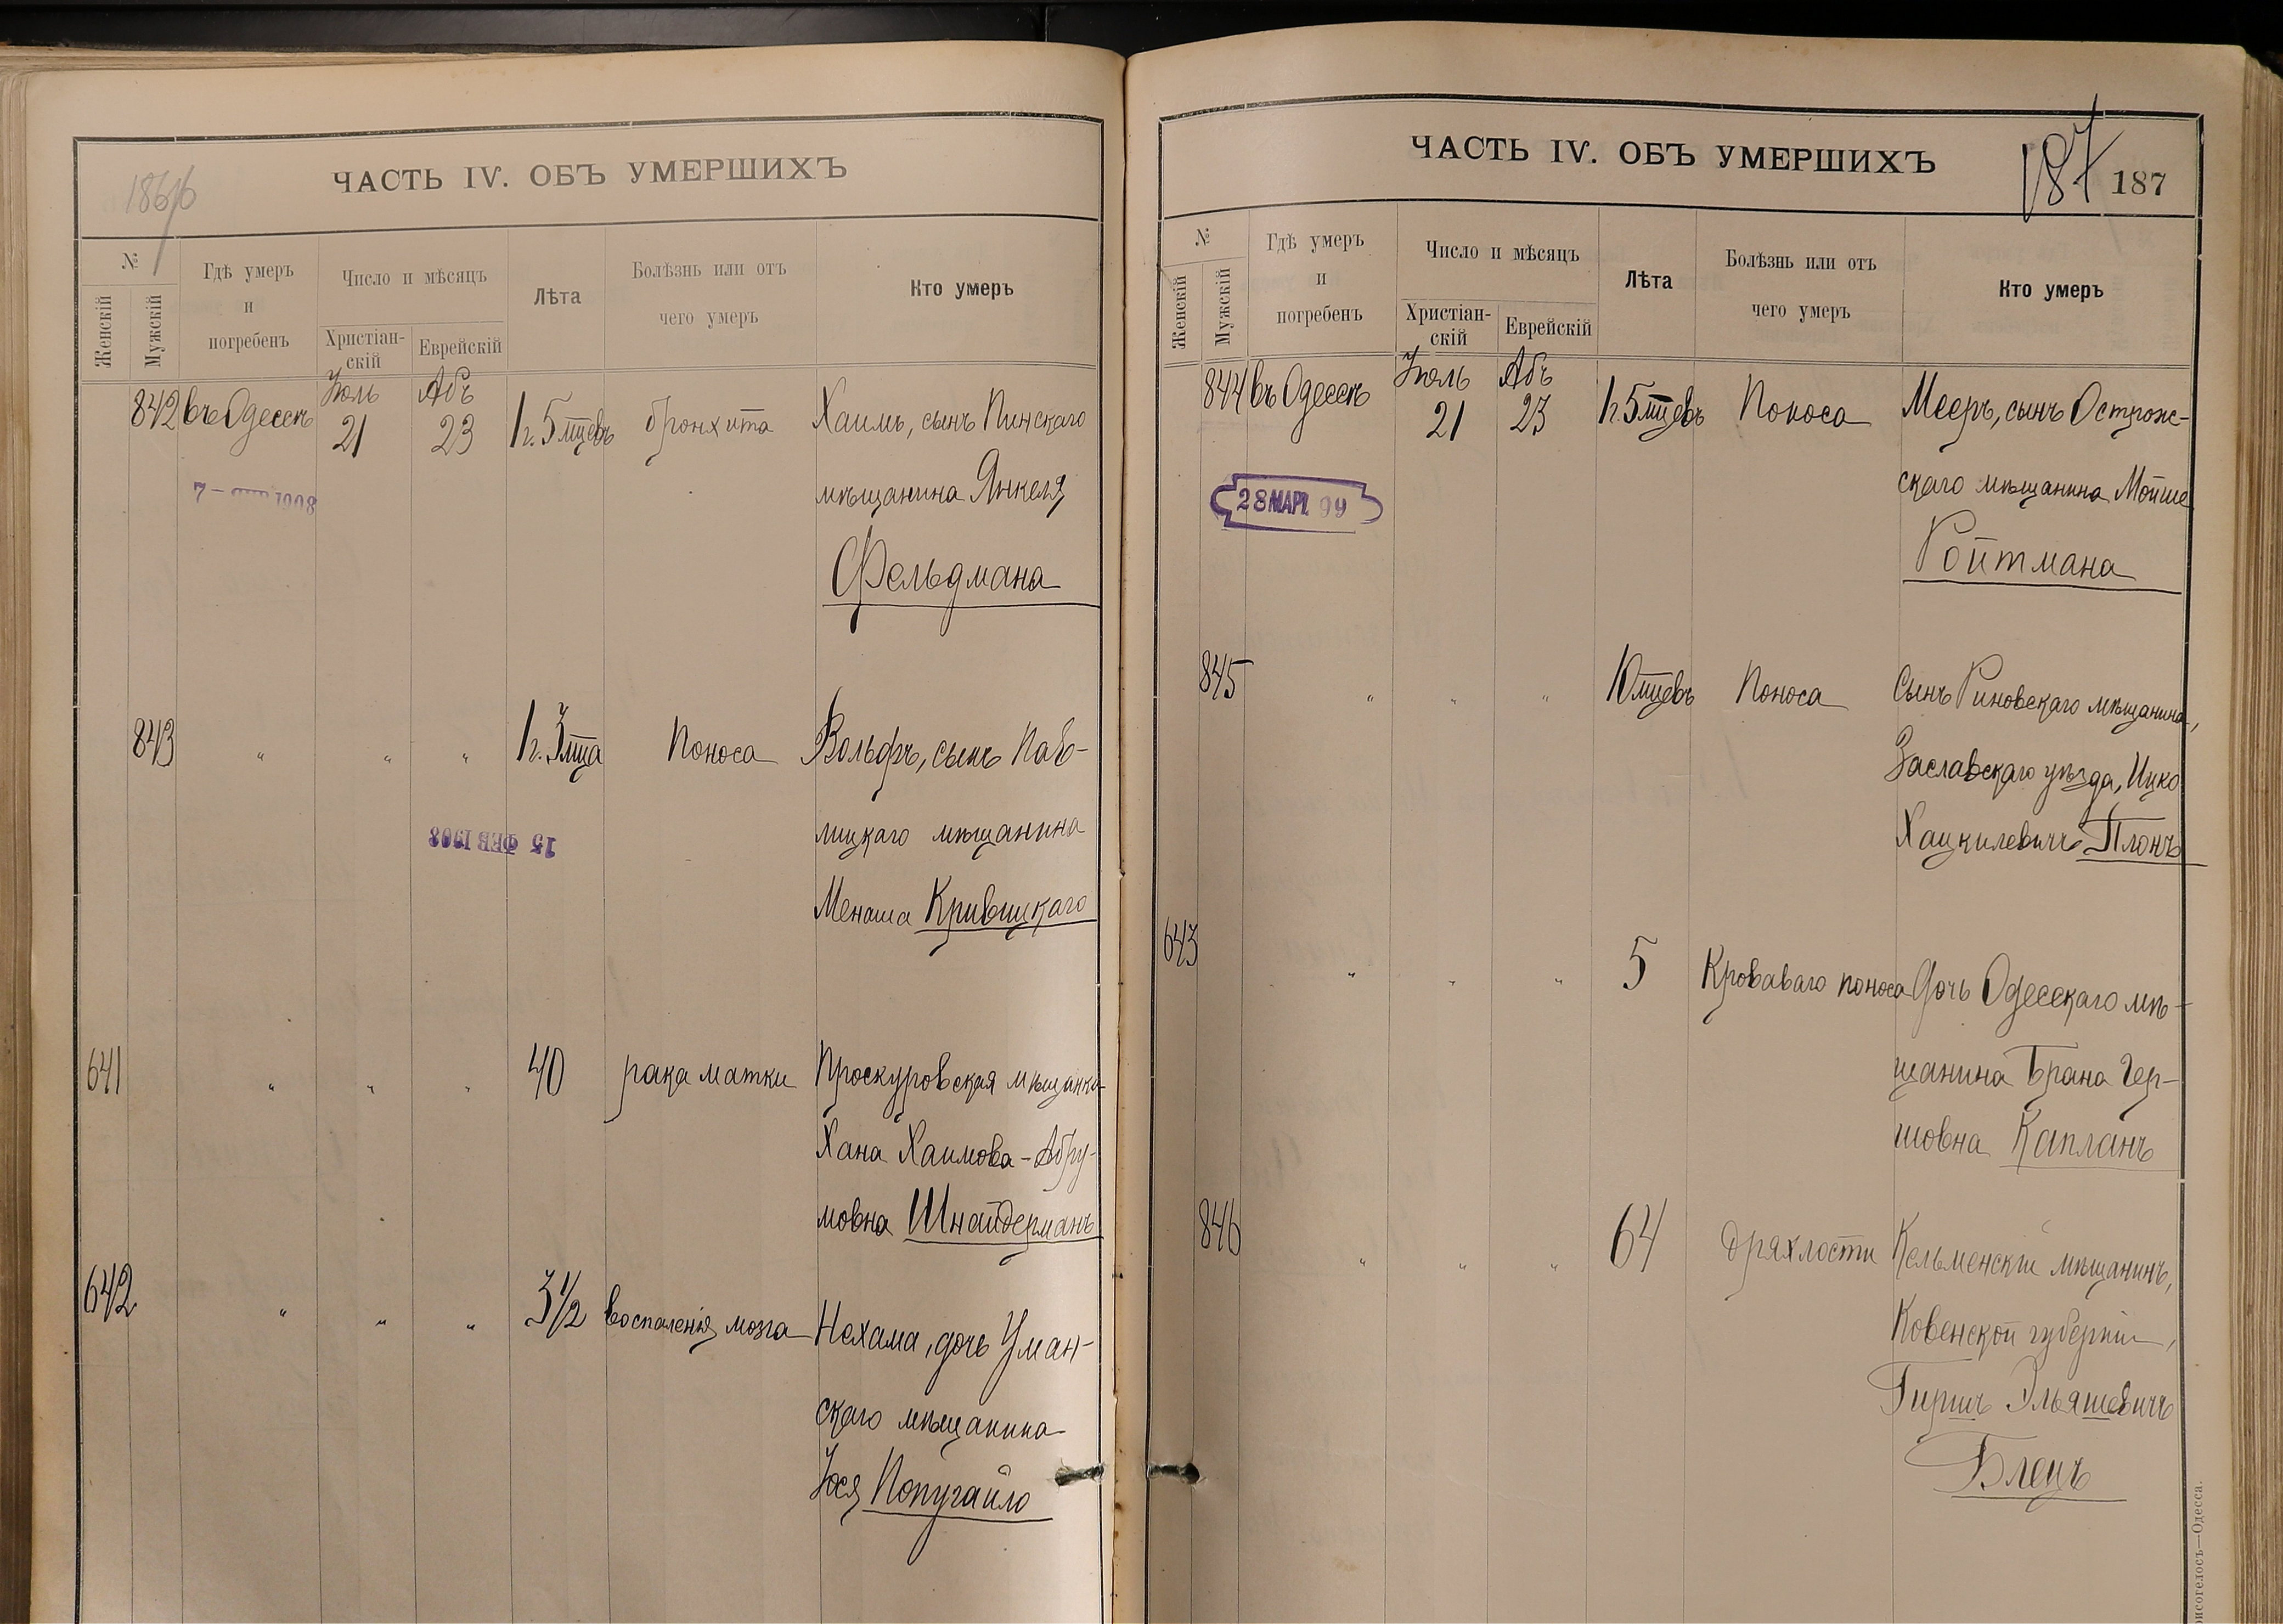 ЧАСТЬ IV. ОБЪ УМЕРШИХЪ
№
Женскій
Мужскій
Гдѣ умеръ
и
погребенъ
Число и мѣсяцъ
Христіан-
скій
Еврейскій
Лѣта
Болѣзнь или отъ
чего умеръ
Кто умеръ
Іюль Абъ
842 въ Одессѣ 21 23 1 г. 5 мцевъ бронхита Хаимъ, сынъ Пинскаго
мѣщанина Янкеля
7 - 1908
Фельдмана
843 " " " 1 г. 3 мца Поноса Вольфъ, сынъ Паво-
лицкаго мѣщанина
15 ФЕВ 1908
Менаша Кривицкаго
641 " " " 40 рака матки Проскуровская мѣщанка
Хана Хаимова-Абру-
мовна Шнайдерманъ
642 " " " 3½ воспаленія мозга Нехама, дочь Уман-
скаго мѣщанина
Іося Попугайло
ЧАСТЬ IV. ОБЪ УМЕРШИХЪ
187 187
№
Женскій
Мужскій
Гдѣ умеръ
и
погребенъ
Число и мѣсяцъ
Христіан-
скій
Еврейскій
Лѣта
Болѣзнь или отъ
чего умеръ
Кто умеръ
Іюль Абъ
844 въ Одессѣ 21 23 1 г. 5 мцевъ Поноса Мееръ, сынъ Острож-
скаго мѣщанина Мойше
28 МАР. 99
Ройтмана
845 " " " 10 мцевъ Поноса Сынъ мѣщанина,
Заславскаго уѣзда, Ицко
Хацкилевичъ Плонъ
643 " " " 5 Кроваваго поноса Дочь Одесскаго мѣ-
щанина Брана Гер-
шовна Капланъ
846 " " " 64 дряхлости Кельменскій мѣщанинъ,
Ковенской губерніи,
Гиршъ Эльяшевичъ
Блецъ
—Одесса.